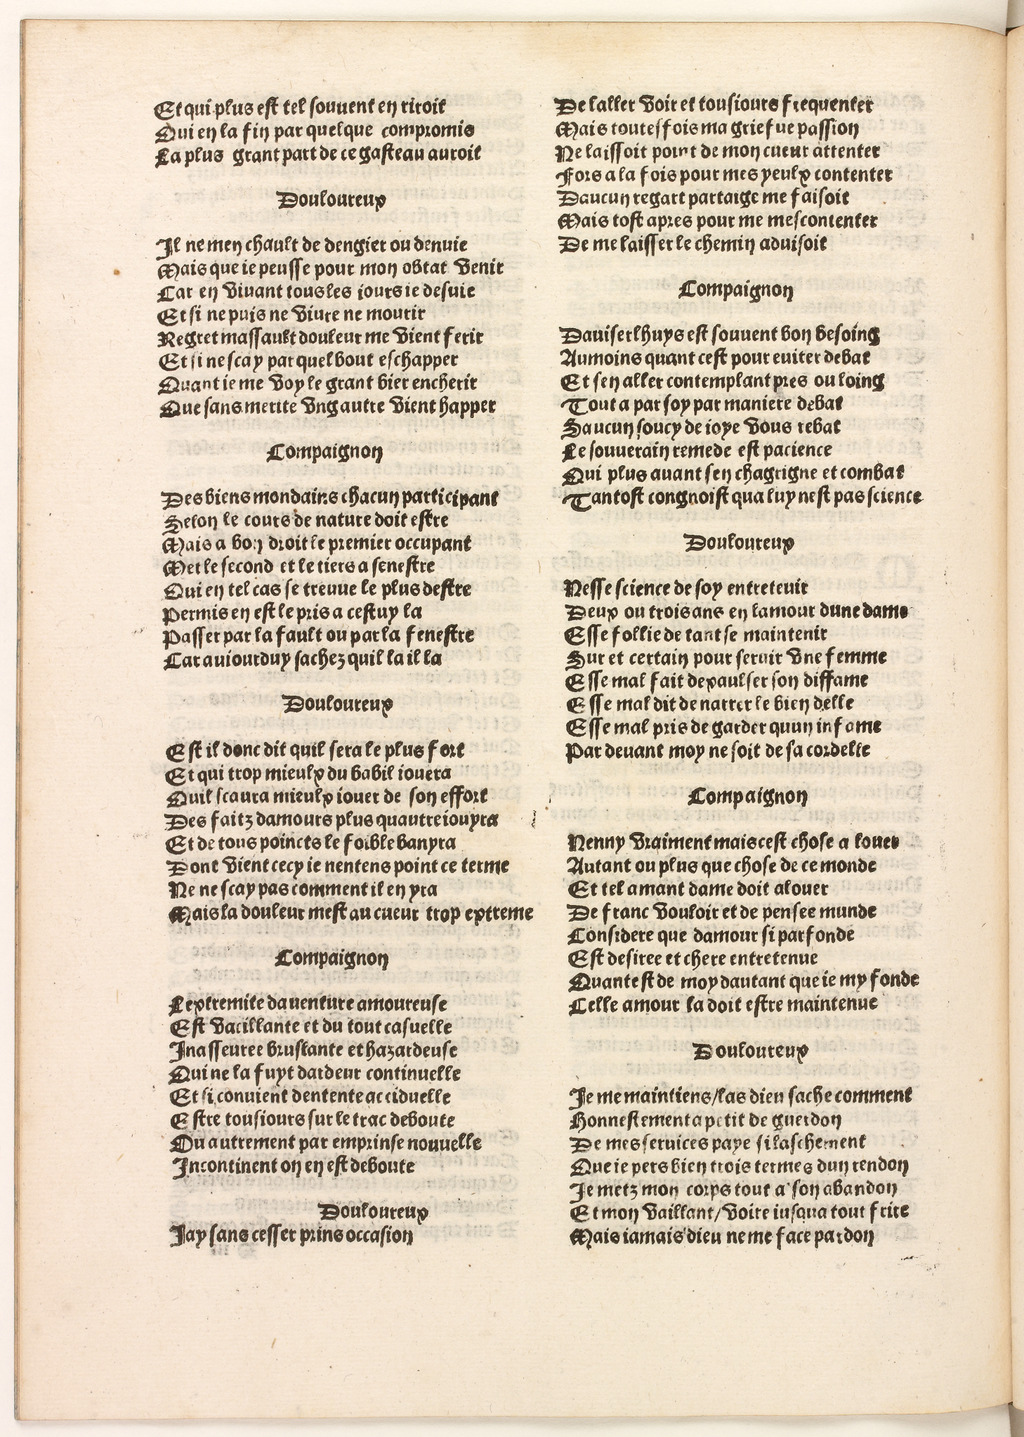 Et qui plus est tel souuent en riroit
Qui en la fin par quelque compromis
La plus grant part de ce gasteau auroit
Douloureux
Il ne men chault de dengier ou denuie
Mais que ie peusse pour mon obtat venir
Car en viuant tous les iours ie desuie
Et si ne puis ne viure ne mourir
Regret massault douleur me vient ferir
Et si ne scay par quel bout eschapper
Quant ie me voy le grant bier encherir
Que sans merite vng autre vient happer
Compaignon
Des biens mondains chacun participant
Selon le cours de nature doit estre
Mais a bon droit le premier occupant
Met le second et le tiers a senestre
Qui en tel cas se treuue le plus destre
Permis en est le pris a cestuy la
Passer par la fault ou par la fenestre
Car auiourduy sachez quil la il la
Douloureux
Est il donc dit quil sera le plus fort
Et qui trop mieulx du babil iouera
Quil scaura mieulx iouer de son effort
Des faitz damours plus quautre iouyra
Et de tous poincts le foible banyra
Dont vient cecy ie nentens point ce terme
Ne ne scay pas comment il en yra
Mais la douleur mest au cueur trop extreme
Compaignon
Lextremite dauenture amoureuse
Est vacillante et du tout casuelle
Inasseuree bruslante et hazardeuse
Qui ne la fuyt dardeur continuelle
Et si conuient dentente acciduelle
Estre tousiours sur le trac deboute
Ou autrement par emprinse nouuelle
Incontinent on en est deboute
Douloureux
Iay sans cesser prins occasion
De laller voir et tousiours frequenter
Mais toutesfois ma griefue passion
Ne laissoit point de mon cueur attenter
Fors a la fois pour mes yeulx contenter
Daucun regart partaige me faisoit
Mais tost apres pour me mescontenter
De me laisser le chemin aduisoit
Compaignon
Dauiser lhuys est souuent bon besoing
Aumoins quant cest pour euiter debat
Et sen aller contemplant pres ou loing
Tout a par soy par maniere debat
Saucun soucy de ioye vous rebat
Le souuerain remede est pacience
Qui plus auant sen chagrigne et combat
Tantost congnoist qua luy nest pas science
Douloureux
Nesse science de soy entretenir
Deux ou trois ans en lamour dune dame
Esse follie de tant se maintenir
Sur et certain pour seruir vne femme
Esse mal fait dexaulser son diffame
Esse mal dit de narrer le bien delle
Esse mal pris de garder quun infame
Par deuant moy ne soit de sa cordelle
Compaignon
Nenny vraiment mais cest chose a louer
Autant ou plus que chose de ce monde
Et tel amant dame doit alouer
De franc vouloir et de pensee munde
Considere que damour si parfonde
Est desiree et chere entretenue
Quant est de moy dautant que ie my fonde
Celle amour la doit estre maintenue
Douloureux
Ie me maintiens/las dieu sache comment
Honnestement a petit de guerdon
De mes seruices paye si laschement
Que ie pers bien trois termes dun rendon
Ie metz mon corps tout a son abandon
Et mon vaillant/voire iusqua tout frire
Mais iamais dieu ne me face pardon